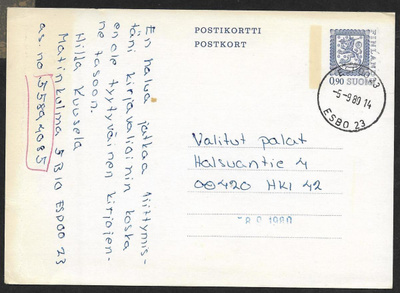 POSTIKORTTI
POSTKORT
0,90 SUOMI
-5-9 80 14
ESBO 23
Valitut palat
Halsuantie 4
00420 HKI 42
-8.9. 1980
En halua jatkaa liittymis-
täni kirjavalioihin koska
en ole tyytyväinen kirjojen-
ne tasoon.
Hilja Kuusela
Matinkulma 5 B 10 ESPOO 23
as. no 5589 4035